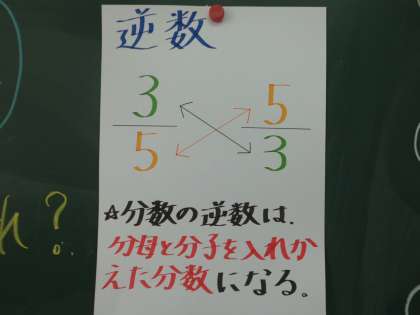 逆数
3 5
5 3
☆分数の逆数は、
分母と分子を入れか
えた分数になる。
?